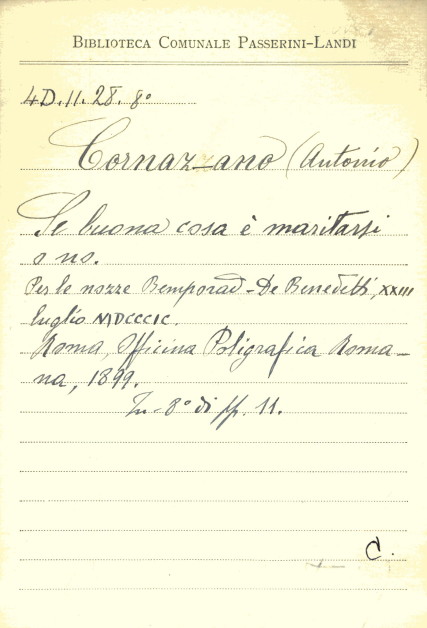 BIBLIOTECA COMUNALE PASSERINI-LANDI
4D.11.28.8°
Cornaz-ano (Antonio)
Se buona cosa è maritarsi
o no.
Per le nozze Bemporad-De Benedetti, XXIII
luglio MDCCCIC.
Roma, Officina Poligrafica Roma-
na, 1899.
In-8° di pp. 11.
C.